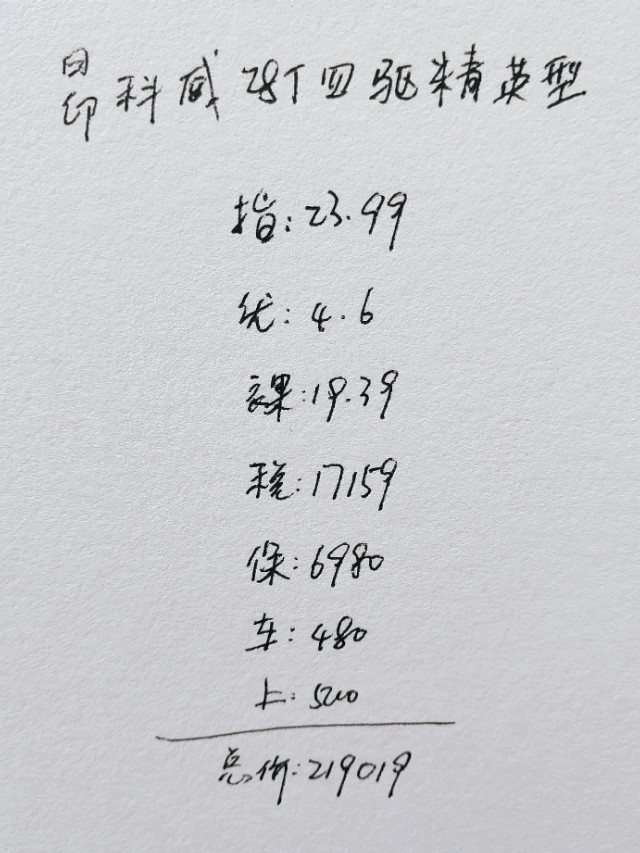 昂科威28T四驱精英型
指:23.99
优:4.6
裸:19.39
税:17159
保:6980
车:480
上:500
总价:219019